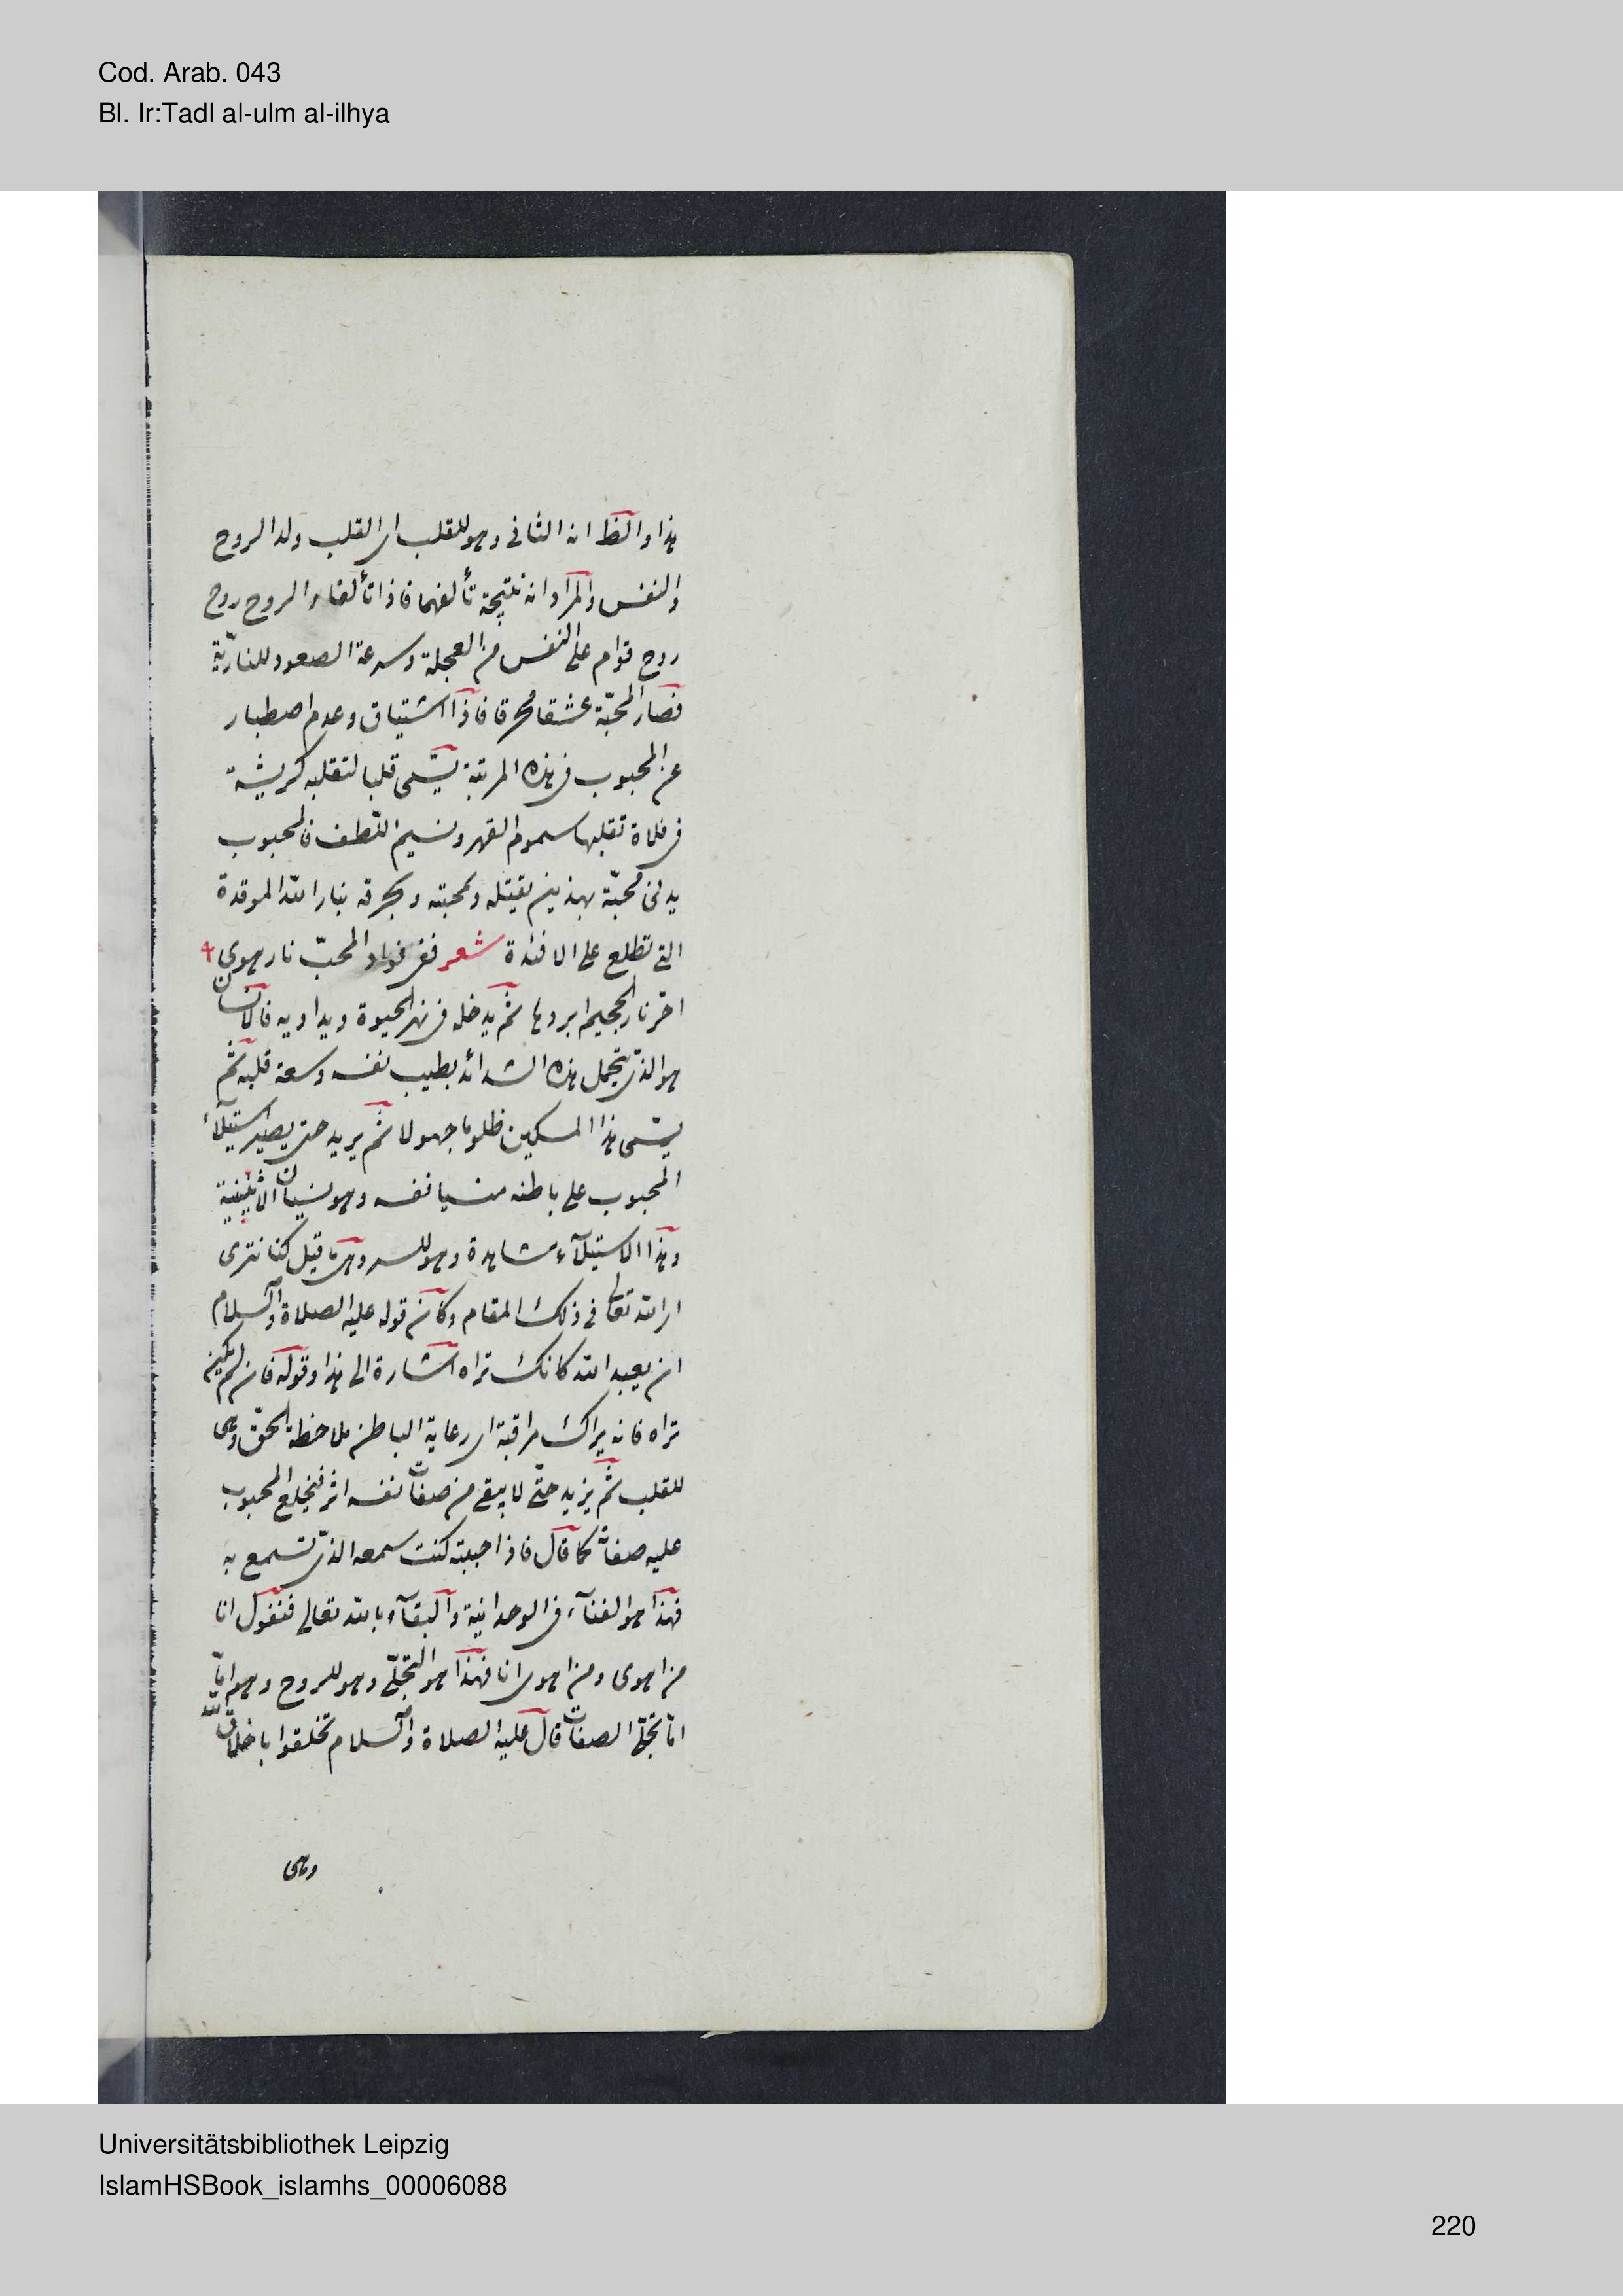 Cod. Arab. 043
Bl. Ir:Tadl al-ulm al-ilhya
هذا والظ انه الثانى وهو للقلب اى القلب ولد الروح
والنفس والمراد انه نتيجة تألفهما فاذا تألفا والروح روح
روح قوام على النفس من العجلة وسرعة الصعود للنارية
فصار المحبّة عشقا محرقا فاذا اشتياق وعدم اصطبار
عن المحبوب فى هذه المرتبة يسمّى قلبا لتقلبه كريشة
فى فلاة تقلبها سموم القهر ونسيم اللّطف فالمحبوب
يدنى محبّه بهذين يقتله ويحرقه بنار الله الموقدة
التى تطلع على الافئدة شعر ففى فواد المحبّ نار هوى
احرّ نار الجحيم ابردها ثم يدخله فى نهر الحيوة ويداويه فالانسان
هو الذى يتحمل هذه الشدائد بطيب نفسه وسعة قلبه ثم
يسمّى هذا المسكين ظلوما جهولا ثم يزيد حتى يصير استيلآء
المحبوب على باطنه منسيا نفسه وهو نسيان الاثنينية
وهذا الاستيلآء مشاهدة وهو للسر وهى ما قيل كنا نترى
الله تعالى فى ذلك المقام وكان قوله عليه الصلاة والسلام
ان يعبد الله كانك تراه اشارة الى هذا وقوله فان لم تكن
تراه فانه يراك مراقبة اى رعاية الباطن ملاحظة الحقّ وهى
للقلب ثم يزيد حتّى لا يبقى من صفات نفسه اثر فيخلع المحبوب
عليه صفاته كما قال فاذا احببته كنت سمعه الذى تسمع به
فهذا هو الفنآء فى الوحدانية والبقآء بالله تعالى فنقول انا
من اهوى ومن اهوى انا فهذا هو التجلّى وهو للروح وهو امّا
امّا تجلّى الصفات قال عليه الصلاة والسلام تخلقوا باخلاق الله
وهى
Universitätsbibliothek Leipzig
IslamHSBook_islamhs_00006088
220